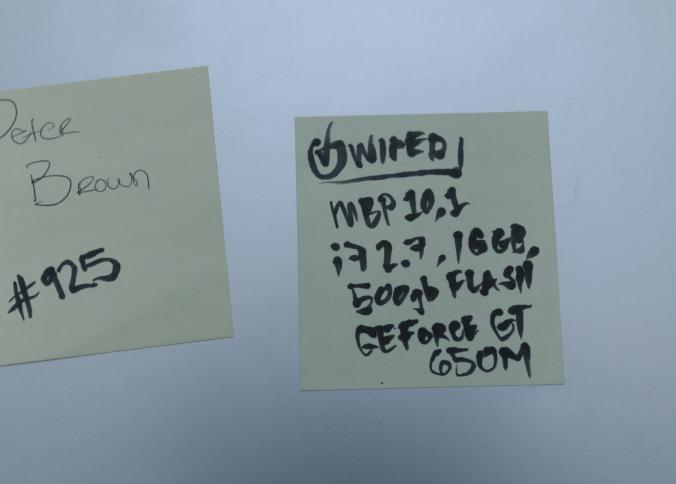 Peter
Brown
#925
WIPED
MBP 10,1
i7 2.7, 16GB,
500gb FLASH
GEFORCE GT
650M